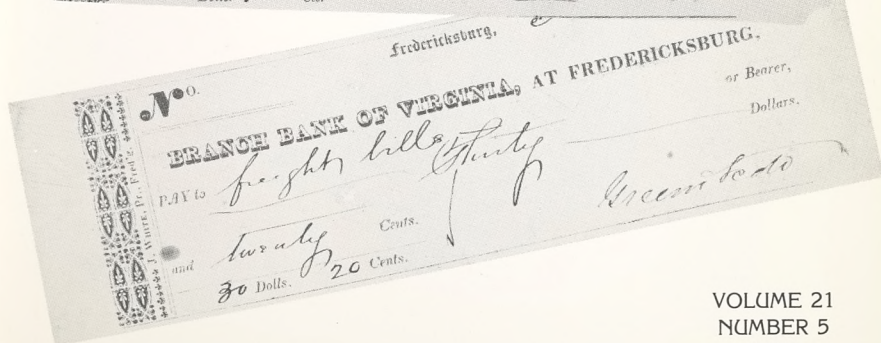 Fredericksburg,
No.
BRANCH BANK OF VIRGINIA, AT FREDERICKSBURG,
PAY to freight bills or Bearer,
Thirty Dollars.
and twenty Cents.
30 Dolls. 20 Cents.
J. White, Pr. Fred'g.
VOLUME 21
NUMBER 5